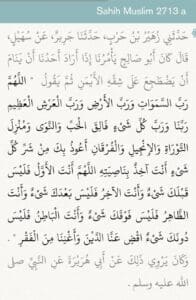 Sahih Muslim 2713 a
حَدَّثَنِي زُهَيْرُ بْنُ حَرْبٍ، حَدَّثَنَا جَرِيرٌ، عَنْ سُهَيْلٍ،
قَالَ كَانَ أَبُو صَالِحٍ يَأْمُرُنَا إِذَا أَرَادَ أَحَدُنَا أَنْ يَنَامَ
أَنْ يَضْطَجِعَ عَلَى شِقِّهِ الأَيْمَنِ ثُمَّ يَقُولُ ‏ "‏ اللَّهُمَّ
رَبَّ السَّمَوَاتِ وَرَبَّ الأَرْضِ وَرَبَّ الْعَرْشِ الْعَظِيمِ
رَبَّنَا وَرَبَّ كُلِّ شَىْءٍ فَالِقَ الْحَبِّ وَالنَّوَى وَمُنْزِلَ
التَّوْرَاةِ وَالإِنْجِيلِ وَالْفُرْقَانِ أَعُوذُ بِكَ مِنْ شَرِّ كُلِّ
شَىْءٍ أَنْتَ آخِذٌ بِنَاصِيَتِهِ اللَّهُمَّ أَنْتَ الأَوَّلُ فَلَيْسَ
قَبْلَكَ شَىْءٌ وَأَنْتَ الآخِرُ فَلَيْسَ بَعْدَكَ شَىْءٌ وَأَنْتَ
الظَّاهِرُ فَلَيْسَ فَوْقَكَ شَىْءٌ وَأَنْتَ الْبَاطِنُ فَلَيْسَ
دُونَكَ شَىْءٌ اقْضِ عَنَّا الدَّيْنَ وَأَغْنِنَا مِنَ الْفَقْرِ ‏"‏ ‏.‏
وَكَانَ يَرْوِي ذَلِكَ عَنْ أَبِي هُرَيْرَةَ عَنِ النَّبِيِّ صلى
الله عليه وسلم ‏.‏